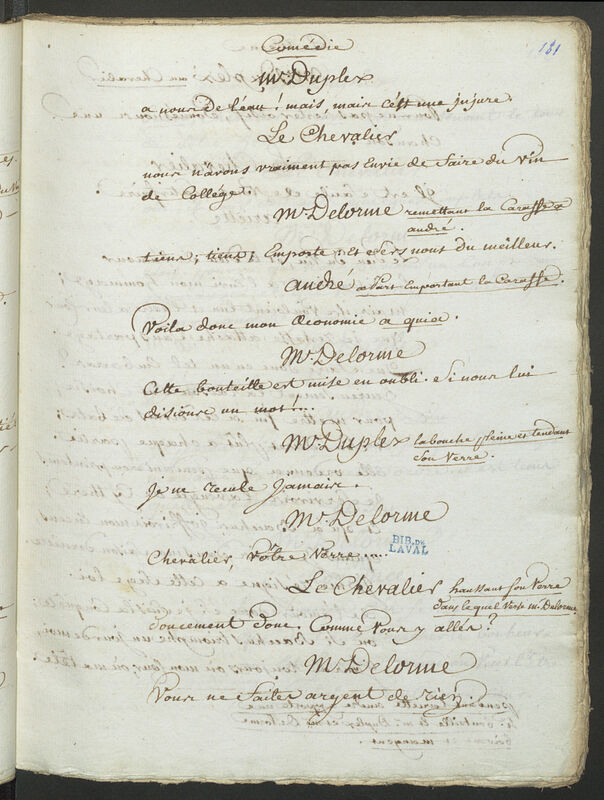 Comédie
151
Mr. Duplex
a nous de l'eau ! mais, mais c'est une injure.
Le Chevalier
nous n'avons vraiment pas Envie de faire du vin
de Collége.
Mr. Delorme remettant la Caraffe a
andré.
tiens, tiens, Emporte, Et sers nous du meilleur.
andré apart Emportant la Caraffe.
Voila donc mon Œconomie a quia.
Mr. Delorme
Cette bouteille est mise en oubli. Si nous lui
disions un mot !...
Mr. Duplex la bouche pleine et tendant
Son Verre.
je ne recule Jamais.
Mr. Delorme
Chevalier, vôtre Verre....
BIB. DE
LAVAL
Le Chevalier haussant son Verre
dans lequel Verse m. Delorme.
doucement donc. Comme vous y allés ?
Mr. Delorme
Vous ne faites argent de rien.